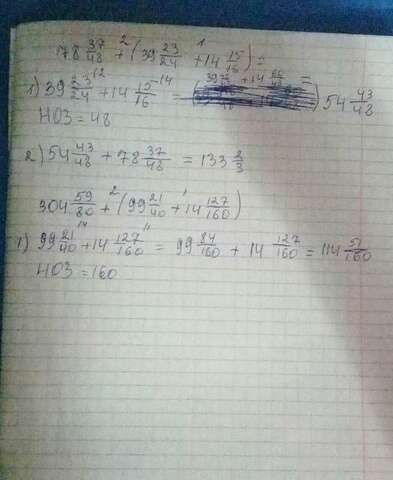 78 37/48 + (39 23/24 + 14 15/16) =
1) 39 23/24 + 14 15/16 = = 54 43/48
НОЗ = 48
2) 54 43/48 + 78 37/48 = 133 2/3
304 59/80 + (99 21/40 + 14 127/160)
1) 99 21/40 + 14 127/160 = 99 84/160 + 14 127/160 = 114 51/160
НОЗ = 160